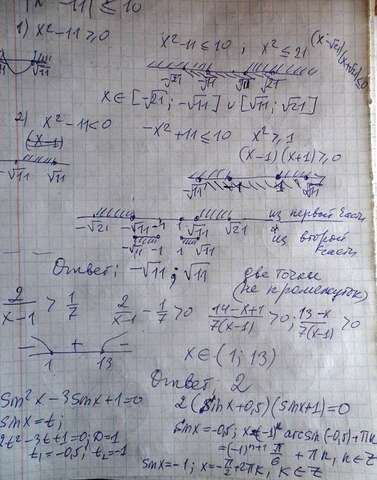 |x²-11| ≤ 10
1) x²-11 ≥ 0
x²-11 ≤ 10 ; x² ≤ 21
(x-√21)(x+√21) ≤ 0
√11
-√21 -√11 √11 √21
x ∈ [-√21; -√11] ∪ [√11; √21]
2) x²-11 < 0
-x²+11 ≤ 10
x² ≥ 1
(x-1)
(x-1)(x+1) ≥ 0
-√11 √11
-√11 -1 1 √11
-√21 -√11 -1 1 √11 √21
из первой части
-√11 -1 1 √11
из второй части
Ответ: -√11 ; √11
две точки
(не промежуток)
2/(x-1) > 1/7
2/(x-1) - 1/7 > 0
(14-x+1)/7(x-1) > 0 ; (13-x)/7(x-1) > 0
- + -
1 13
x ∈ (1; 13)
Ответ: 2
Sin²x - 3Sinx + 1 = 0
2(Sinx+0,5)(Sinx+1) = 0
Sinx = t;
2t²-3t+1=0; D=1
t₁=-0,5; t₂=-1
Sinx = -0,5; x = (-1)ᵏ arcsin(-0,5) + πk
= (-1)ⁿ⁺¹ π/6 + πk, k ∈ Z
Sinx = -1; x = -π/2 + 2πk, k ∈ Z